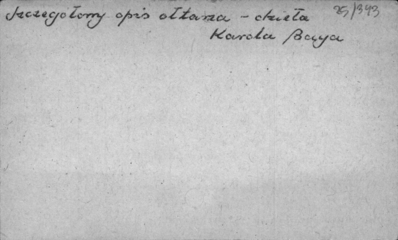 Szczegołowy opis ołtarza – dzieła 25/343
Karola Baya